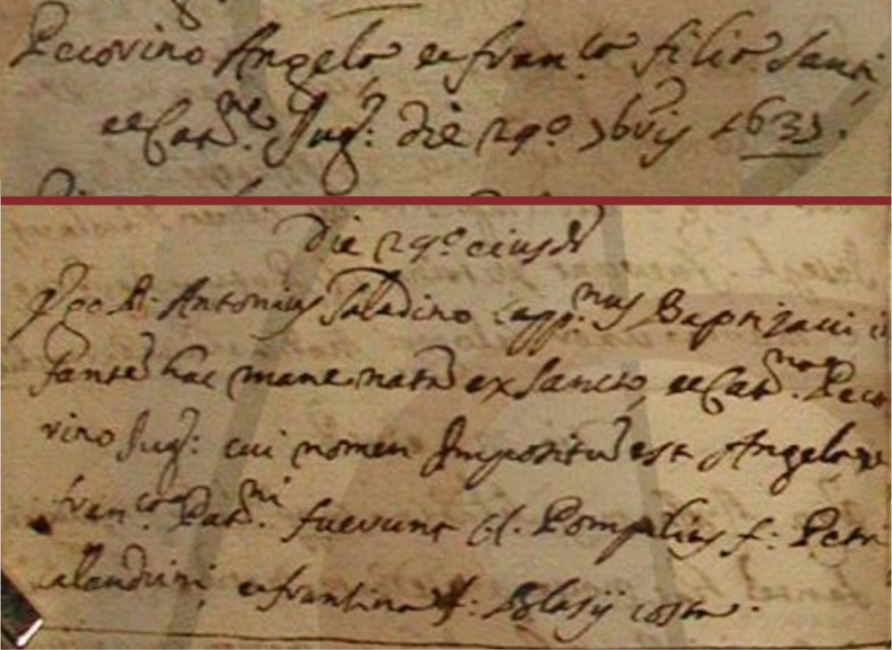 Pecorino Angelo et fran.co filio Sancti
et Cat.ne Jug.: die 29.o 9bris 1635.
Die 29.o eiusd
Ego D. Antonius Paladino Capp.nus Baptizavi i
fante hac mane nata ex Sancto, et Cat.na Peco
rino Jug: cui nomen Impositu est Angelo
fran.co Pat.ni fuerunt Cl. Pompilius f: Petri
alandrini, et frantina f: Blasij costa.